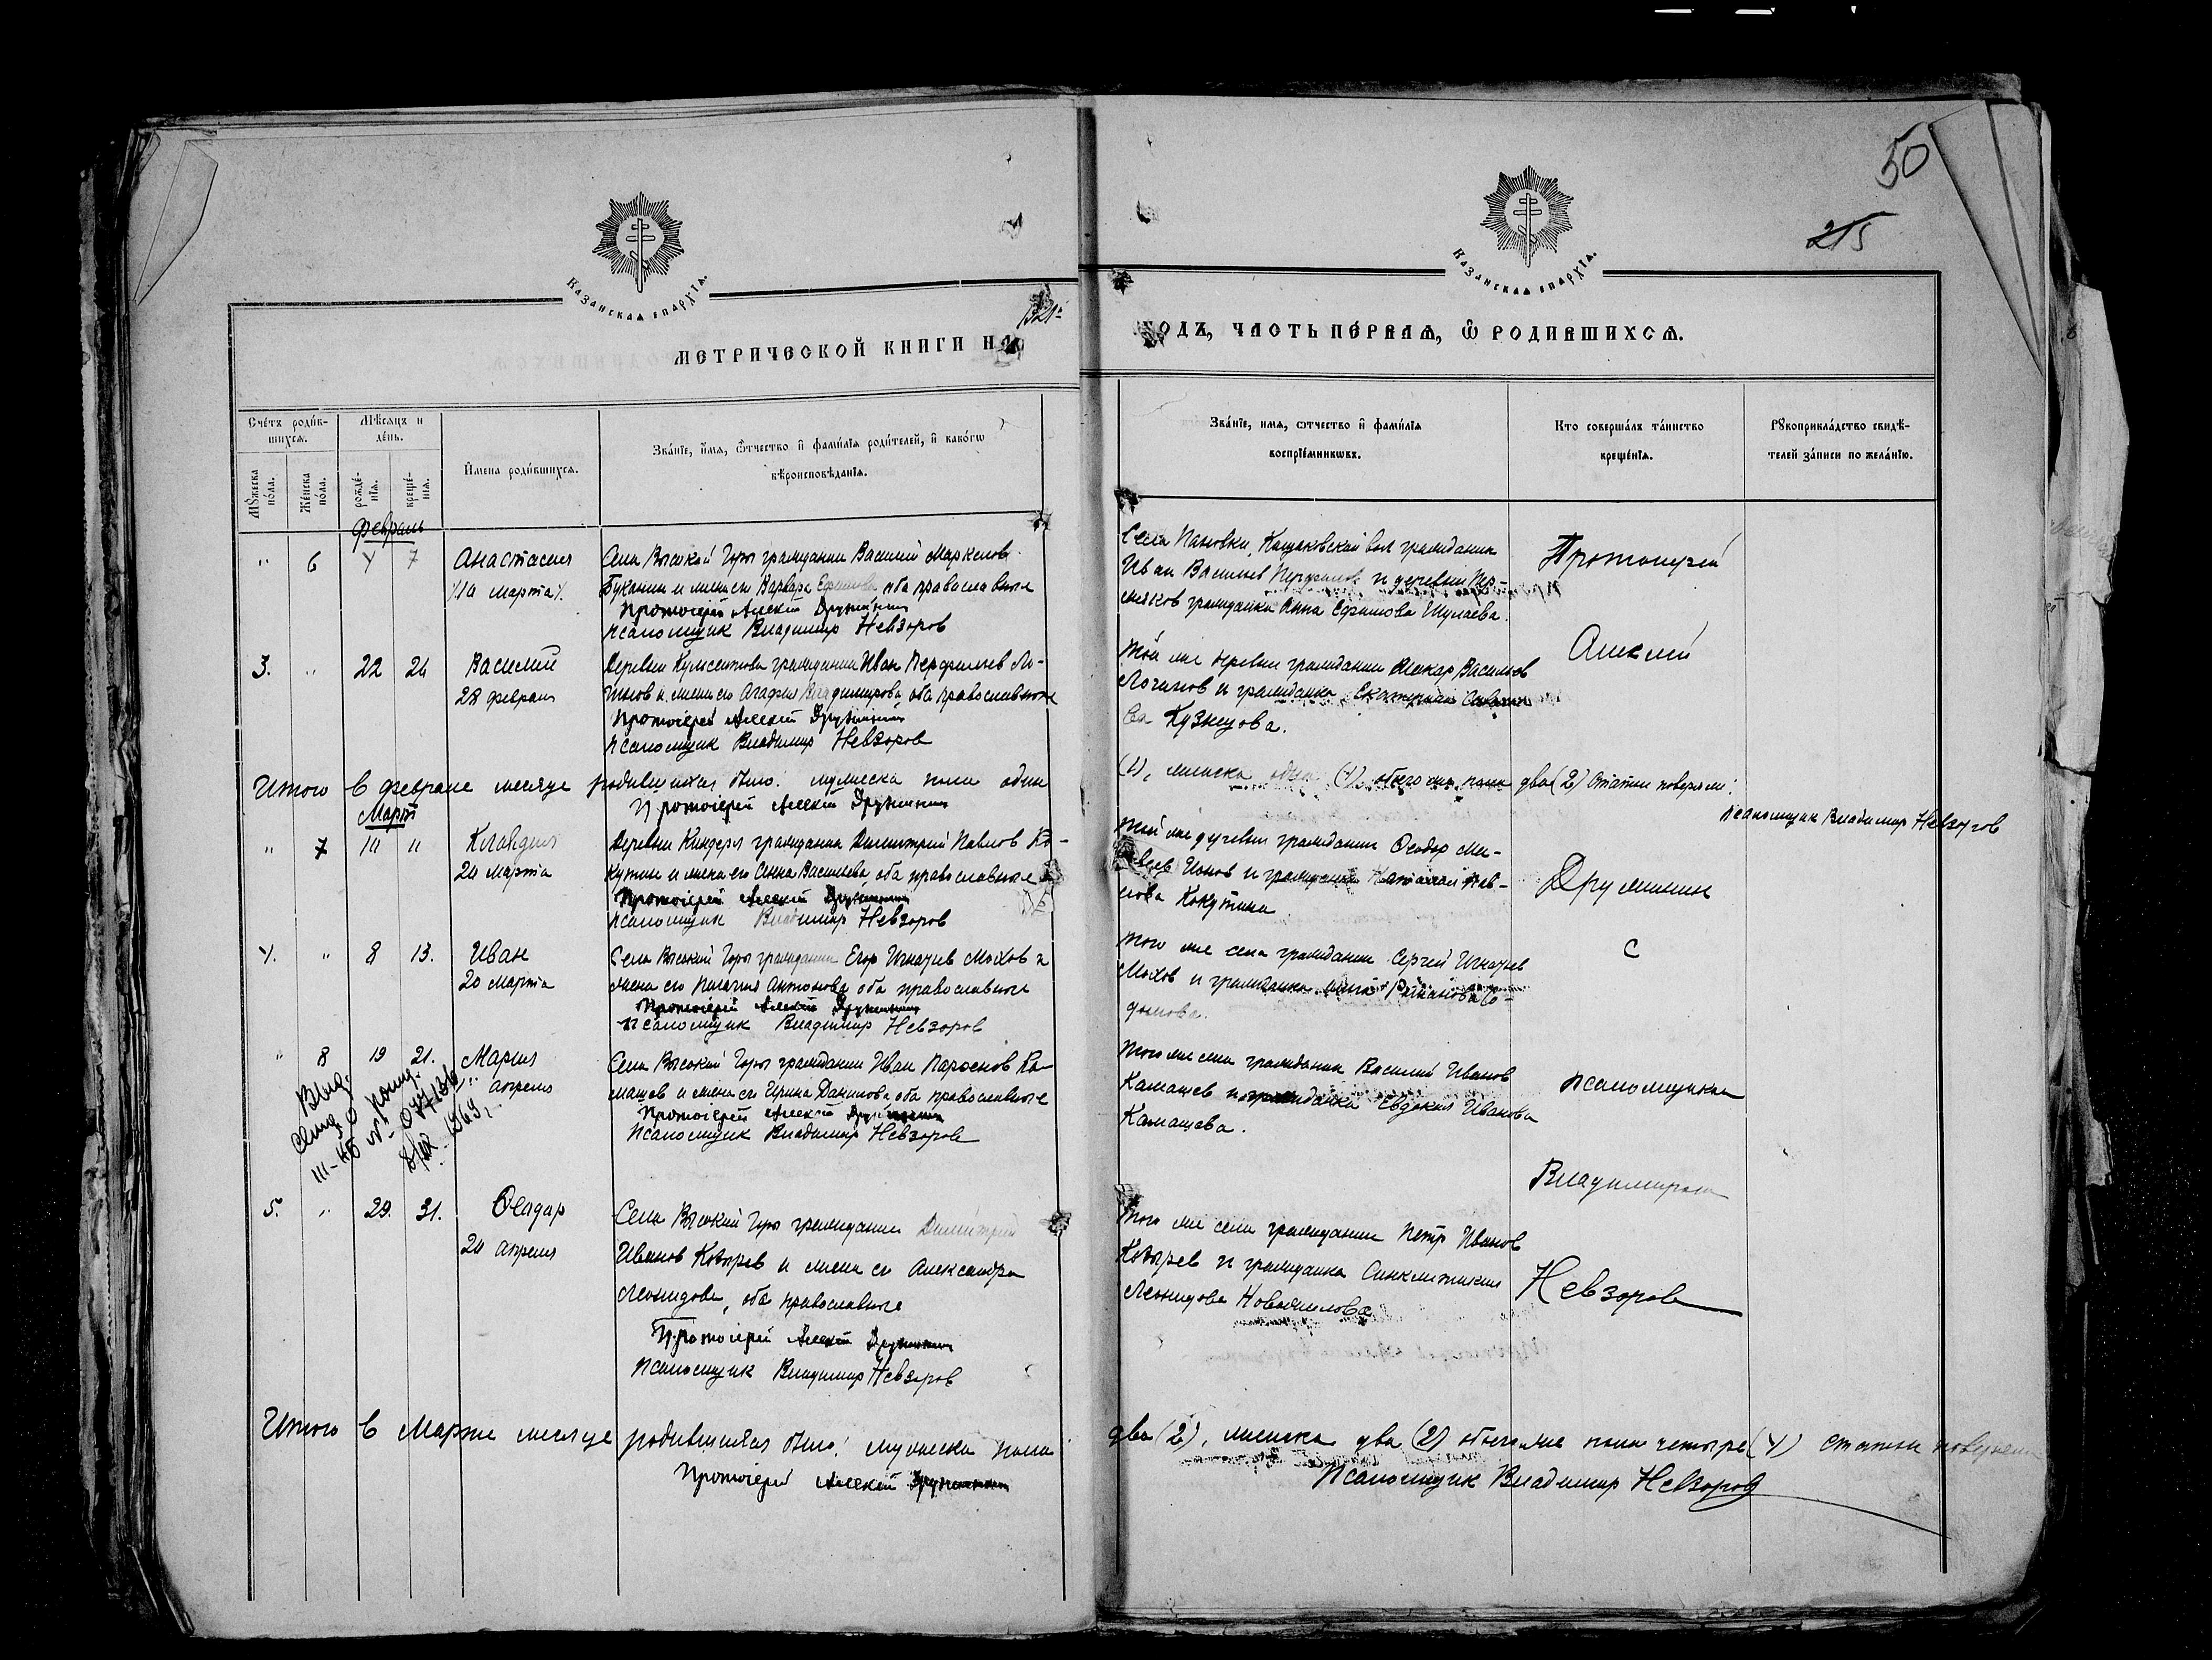 50
215
Казанская епархїя.
Казанская епархїя.
МЕТРИЧЕСКОЙ КНИГИ НА 1921
ГОДЪ, ЧАСТЬ ПЕРВАЯ, Ѡ РОДИВШИХСЯ.
Счетъ родившихся.
Мѣсяцъ и день.
Мꙋжеска пола.
Женска пола.
рожденїя.
крещенїя.
Имена родившихся.
Званїе, имя, ѡтчество и фамилїя родителей, и какогѡ
вѣроисповѣданїя.
Званїе, имя, ѡтчество и фамилїя
воспрїемникѡвъ.
Кто совершалъ таинство
крещенїя.
Рꙋкоприкладство свидѣ-
телей записи по желанїю.
Февраль
" 6 4 7 Анастасия
11а марта
Села Высокой Горы гражданин Василий Маркелов
Буканин и жена его Варвара Ефимова оба православные
Протоіерей Алексій Дружинин
псаломщик Владимир Невзоров
Села Пановки, Кощаковской вол гражданин
Иван Васильев и деревни Пер-
мяков гражданка Анна Ефимова Шулаева.
Протоиерей
Алексий
3. " 22 24 Василий
28 февраля
Деревни гражданин Иван Перфильев Ло-
гинов и жена его Агафия Владимирова, оба православные
Протоіерей Алексій Дружинин
псаломщик Владимир Невзоров
Той же деревни гражданин Васильев
Логинов и гражданка Екатерина
ва Кузнецова.
Итого в феврале месяце родившихся было: мужеска пола один
(1), женска один (1), обоего пола два (2) Статьи поверяли:
Протоіерей Алексій Дружинин
псаломщик Владимир Невзоров
Март
" 7 Клавдия
20 марта
Деревни Киндери гражданин Димитрий Павлов Ко-
кутин и жена его Анна Васильева оба православные
Протоіерей Алексій Дружинин
псаломщик Владимир Невзоров
Той же деревни гражданин Феодор Ма-
Ионов и гражданка Наталия Пав-
лова Кокутина
Дружинин
4. " 8 13. Иван
20 марта
Села Высокой Горы гражданин Егор Игнатьев Мохов и
жена его Пелагия Антонова оба православные
Протоіерей Алексій Дружинин
псаломщик Владимир Невзоров
Того же села гражданин Сергей Игнатьев
Мохов и гражданка
С
" 8 19 21. Мария
" апреля
Села Высокой Горы гражданин Иван Парфенов Ка-
машев и жена его Ирина Данилова, оба православные
Протоіерей Алексій Дружинин
Псаломщик Владимир Невзоров
Того же села гражданин Василий Иванов
Камашев и гражданка Евдокия Иванова
Камашева.
псаломщиком
Владимиром
Выд.
III-КБ №
5. " 29. 31. Феодор
20 апреля
Села Высокой Горы гражданин Димитрий
Иванов Козырев и жена его Александра
Леонидова, оба православные
Протоіерей Алексій Дружинин
псаломщик Владимир Невзоров
Того же села гражданин Петр Иванов
Козырев и гражданка Синклитикия
Леонидова
Невзоров
Итого в Марте месяце родившихся было: мужеска пола
два (2), женска два (2) обоего же пола четыре (4) статьи поверяли
Протоіерей Алексій Дружинин
Псаломщик Владимир Невзоров